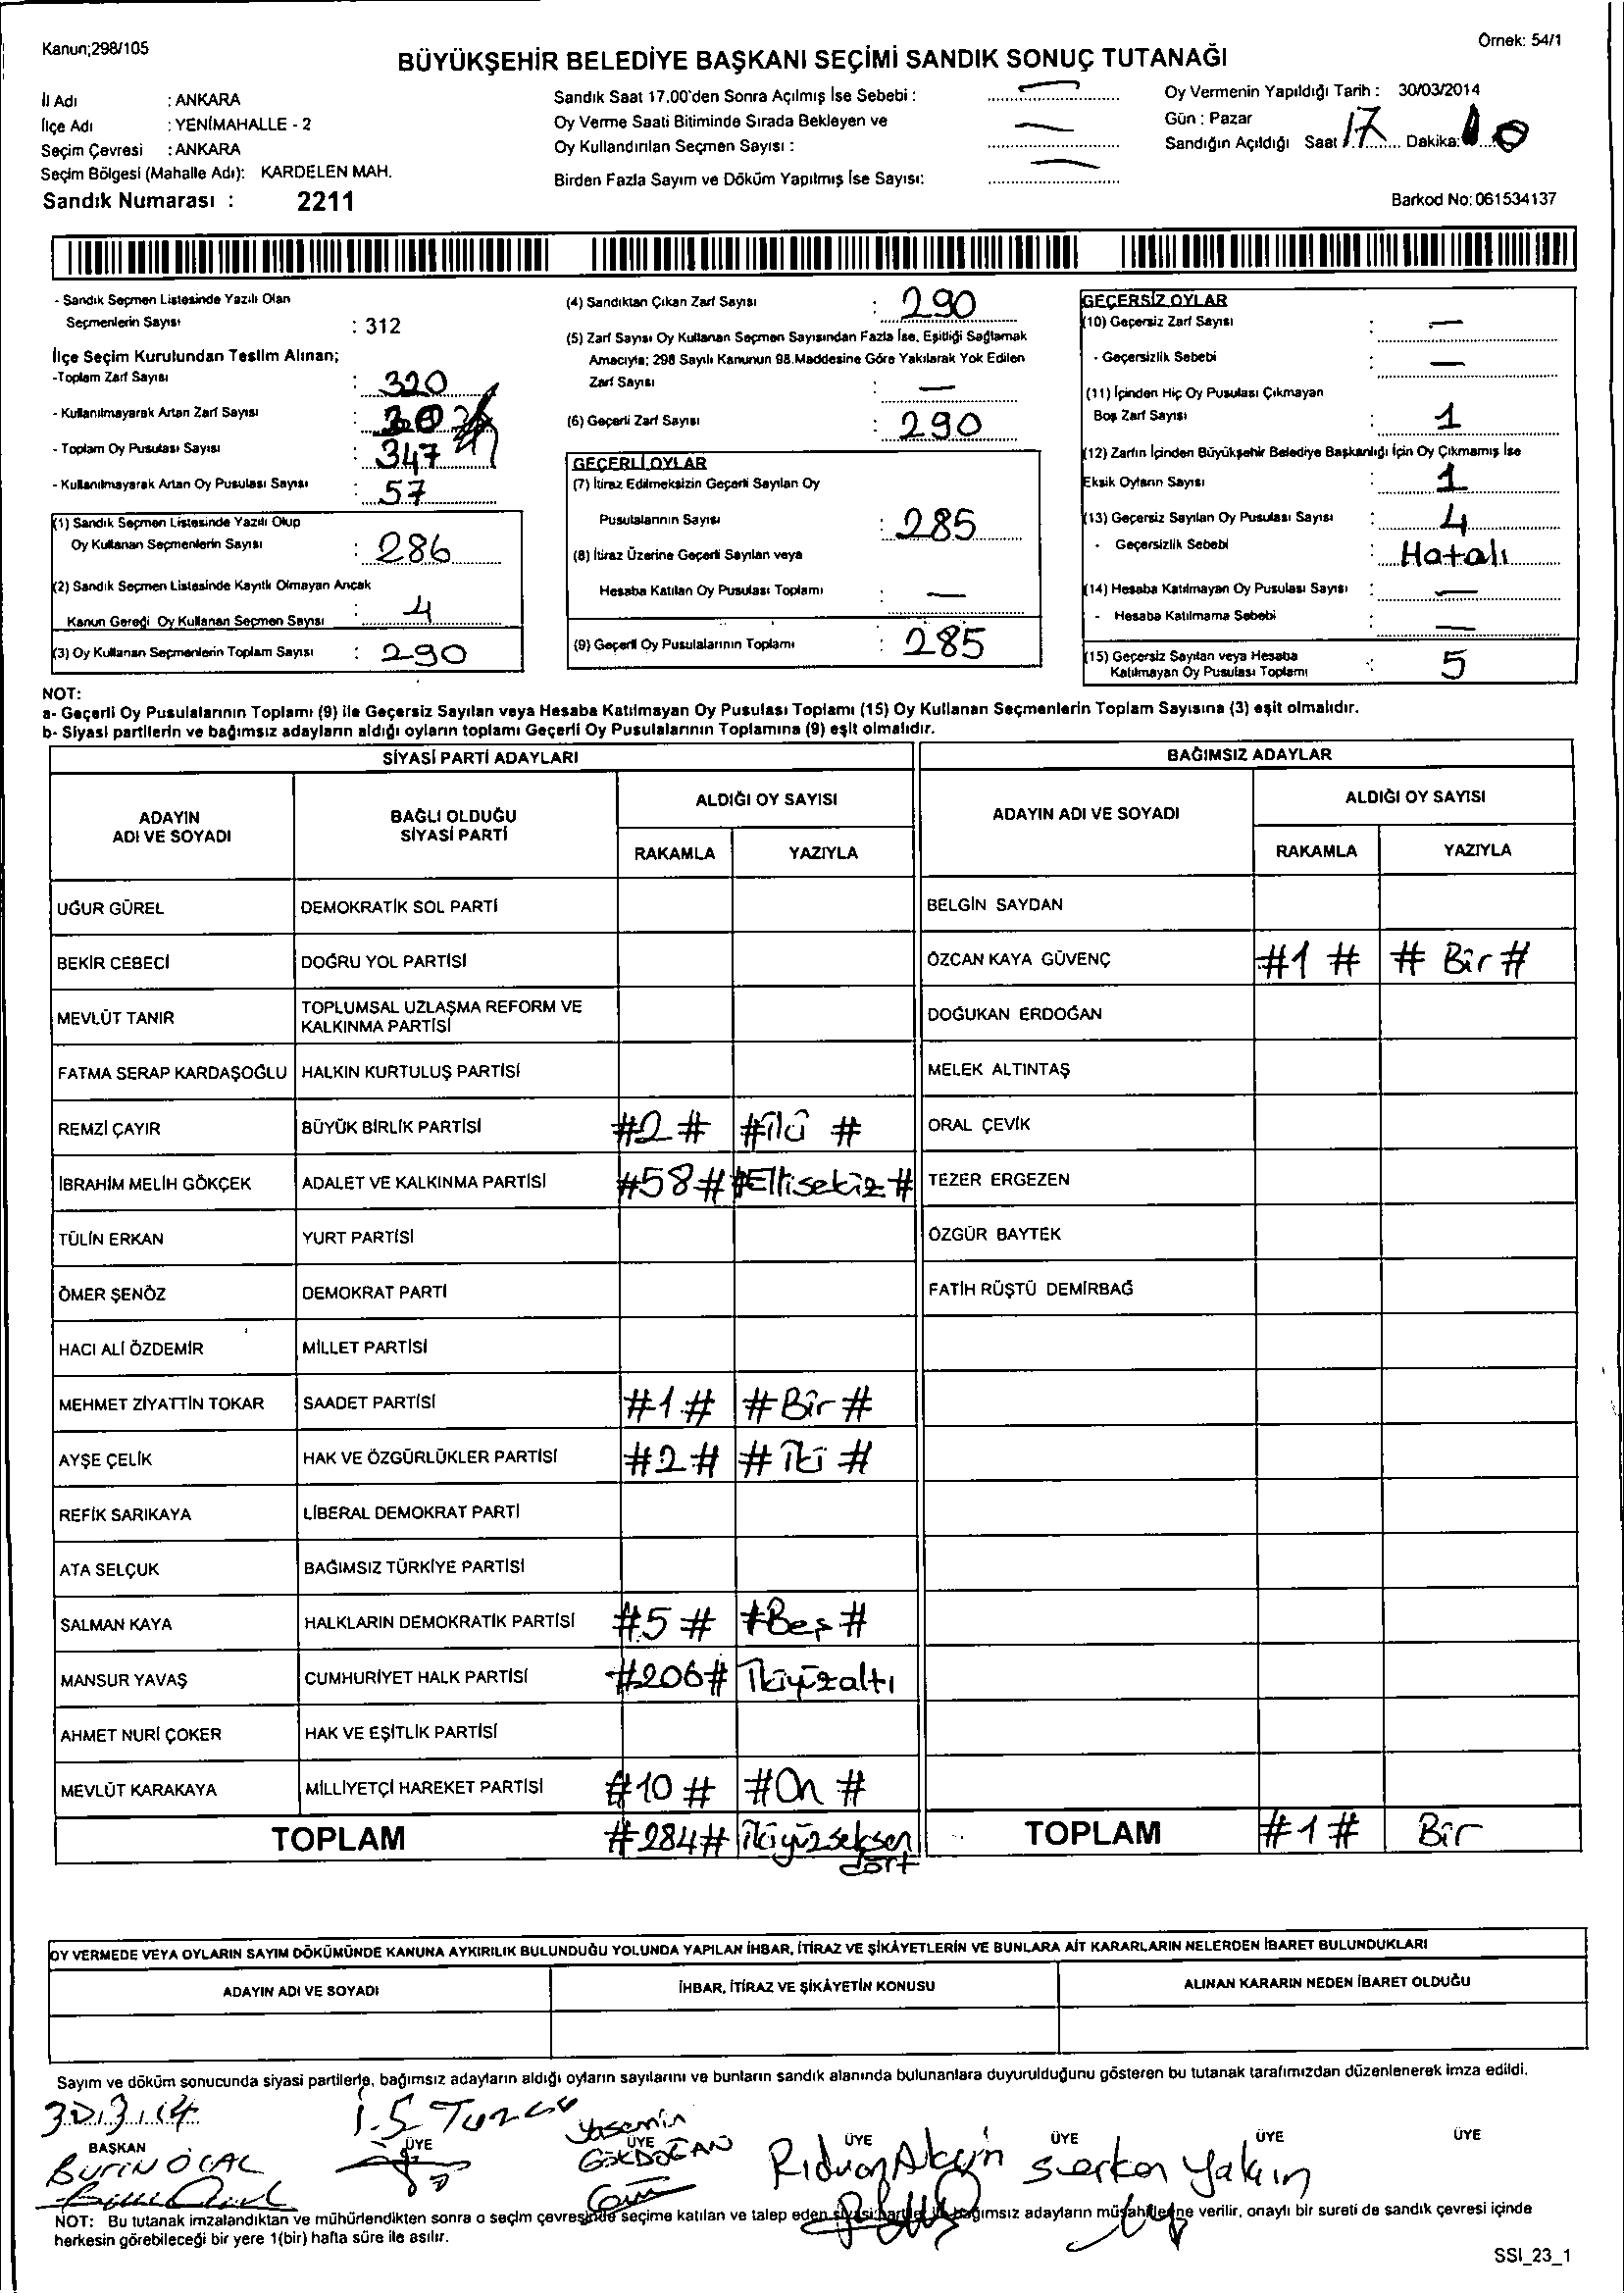 Kanun;298/105
Örnek: 54/1
BÜYÜKŞEHİR BELEDİYE BAŞKANI SEÇİMİ SANDIK SONUÇ TUTANAĞI
İl Adı : ANKARA
İlçe Adı : YENİMAHALLE - 2
Seçim Çevresi : ANKARA
Seçim Bölgesi (Mahalle Adı): KARDELEN MAH.
Sandık Numarası : 2211
Sandık Saat 17.00'den Sonra Açılmış İse Sebebi : —
Oy Verme Saati Bitiminde Sırada Bekleyen ve
Oy Kullandırılan Seçmen Sayısı : —
Birden Fazla Sayım ve Döküm Yapılmış İse Sayısı: —
Oy Vermenin Yapıldığı Tarih : 30/03/2014
Gün : Pazar
Sandığın Açıldığı Saat 17 Dakika:
Barkod No: 061534137
- Sandık Seçmen Listesinde Yazılı Olan
Seçmenlerin Sayısı : 312
İlçe Seçim Kurulundan Teslim Alınan;
-Toplam Zarf Sayısı : 320
- Kullanılmayarak Artan Zarf Sayısı :
- Toplam Oy Pusulası Sayısı : 347
- Kullanılmayarak Artan Oy Pusulası Sayısı : 57
(1) Sandık Seçmen Listesinde Yazılı Olup
Oy Kullanan Seçmenlerin Sayısı : 286
(2) Sandık Seçmen Listesinde Kayıtlı Olmayan Ancak
Kanun Gereği Oy Kullanan Seçmen Sayısı : 4
(3) Oy Kullanan Seçmenlerin Toplam Sayısı : 290
(4) Sandıktan Çıkan Zarf Sayısı : 290
(5) Zarf Sayısı Oy Kullanan Seçmen Sayısından Fazla İse, Eşitliği Sağlamak
Amacıyla; 298 Sayılı Kanunun 98.Maddesine Göre Yakılarak Yok Edilen
Zarf Sayısı : —
(6) Geçerli Zarf Sayısı : 290
GEÇERLİ OYLAR
(7) İtiraz Edilmeksizin Geçerli Sayılan Oy
Pusulalarının Sayısı : 285
(8) İtiraz Üzerine Geçerli Sayılan veya
Hesaba Katılan Oy Pusulası Toplamı : —
(9) Geçerli Oy Pusulalarının Toplamı : 285
GEÇERSİZ OYLAR
(10) Geçersiz Zarf Sayısı : —
- Geçersizlik Sebebi : —
(11) İçinden Hiç Oy Pusulası Çıkmayan
Boş Zarf Sayısı : 1
(12) Zarfın İçinden Büyükşehir Belediye Başkanlığı İçin Oy Çıkmamış İse
Eksik Oyların Sayısı : 1
(13) Geçersiz Sayılan Oy Pusulası Sayısı : 4
- Geçersizlik Sebebi : Hatalı
(14) Hesaba Katılmayan Oy Pusulası Sayısı : —
- Hesaba Katılmama Sebebi : —
(15) Geçersiz Sayılan veya Hesaba
Katılmayan Oy Pusulası Toplamı : 5
NOT:
a- Geçerli Oy Pusulalarının Toplamı (9) ile Geçersiz Sayılan veya Hesaba Katılmayan Oy Pusulası Toplamı (15) Oy Kullanan Seçmenlerin Toplam Sayısına (3) eşit olmalıdır.
b- Siyasi partilerin ve bağımsız adayların aldığı oyların toplamı Geçerli Oy Pusulalarının Toplamına (9) eşit olmalıdır.
SİYASİ PARTİ ADAYLARI
ADAYIN ADI VE SOYADI
BAĞLI OLDUĞU SİYASİ PARTİ
ALDIĞI OY SAYISI
RAKAMLA YAZIYLA
UĞUR GÜREL DEMOKRATİK SOL PARTİ
BEKİR CEBECİ DOĞRU YOL PARTİSİ
MEVLÜT TANIR TOPLUMSAL UZLAŞMA REFORM VE KALKINMA PARTİSİ
FATMA SERAP KARDAŞOĞLU HALKIN KURTULUŞ PARTİSİ
REMZİ ÇAYIR BÜYÜK BİRLİK PARTİSİ #2# #iki #
İBRAHİM MELİH GÖKÇEK ADALET VE KALKINMA PARTİSİ #58# #Ellisekiz#
TÜLİN ERKAN YURT PARTİSİ
ÖMER ŞENÖZ DEMOKRAT PARTİ
HACI ALİ ÖZDEMİR MİLLET PARTİSİ
MEHMET ZİYATTİN TOKAR SAADET PARTİSİ #1# #Bir#
AYŞE ÇELİK HAK VE ÖZGÜRLÜKLER PARTİSİ #2# #İki #
REFİK SARIKAYA LİBERAL DEMOKRAT PARTİ
ATA SELÇUK BAĞIMSIZ TÜRKİYE PARTİSİ
SALMAN KAYA HALKLARIN DEMOKRATİK PARTİSİ #5# #Beş#
MANSUR YAVAŞ CUMHURİYET HALK PARTİSİ #206# İkiyüzaltı
AHMET NURİ ÇOKER HAK VE EŞİTLİK PARTİSİ
MEVLÜT KARAKAYA MİLLİYETÇİ HAREKET PARTİSİ #10# #On #
TOPLAM #284# İkiyüzseksen dört
BAĞIMSIZ ADAYLAR
ADAYIN ADI VE SOYADI
ALDIĞI OY SAYISI
RAKAMLA YAZIYLA
BELGİN SAYDAN
ÖZCAN KAYA GÜVENÇ #1 # # Bir#
DOĞUKAN ERDOĞAN
MELEK ALTINTAŞ
ORAL ÇEVİK
TEZER ERGEZEN
ÖZGÜR BAYTEK
FATİH RÜŞTÜ DEMİRBAĞ
TOPLAM #1# Bir
OY VERMEDE VEYA OYLARIN SAYIM DÖKÜMÜNDE KANUNA AYKIRILIK BULUNDUĞU YOLUNDA YAPILAN İHBAR, İTİRAZ VE ŞİKÂYETLERİN VE BUNLARA AİT KARARLARIN NELERDEN İBARET BULUNDUKLARI
ADAYIN ADI VE SOYADI
İHBAR, İTİRAZ VE ŞİKÂYETİN KONUSU
ALINAN KARARIN NEDEN İBARET OLDUĞU
Sayım ve döküm sonucunda siyasi partilerle, bağımsız adayların aldığı oyların sayılarını ve bunların sandık alanında bulunanlara duyurulduğunu gösteren bu tutanak tarafımızdan düzenlenerek imza edildi.
30.3.14
BAŞKAN ÜYE ÜYE ÜYE ÜYE ÜYE ÜYE
Yasemin GÖKDOĞAN
Serkan Yakın
NOT: Bu tutanak imzalandıktan ve mühürlendikten sonra o seçim çevresinde seçime katılan ve talep eden siyasi partiler ile bağımsız adayların müşahitlerine verilir, onaylı bir sureti de sandık çevresi içinde
herkesin görebileceği bir yere 1(bir) hafta süre ile asılır.
SSI_23_1